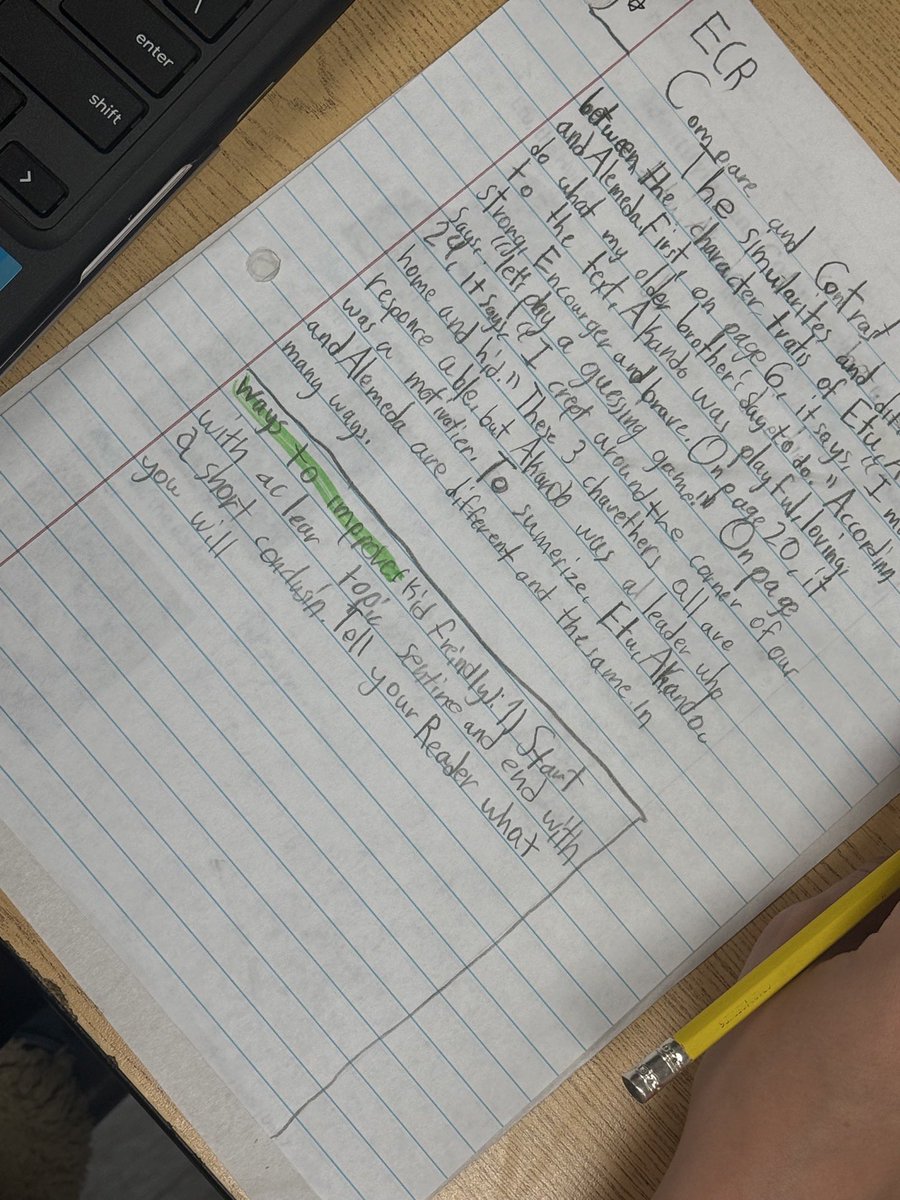 ECR
Compare and Contrast
The simularites and
between the character tratis of Etu,
and Alemeda. First, on page 6, it says, "I
do what my older brother's say to do." According
to the text, Ahando was playful, loving,
strong, Encourger and brave. On page 20, it
says, "lets play a guessing game." On page
24, it says "I crept around the corner of our
home and hid." These 3 charethers all are
responce able, but Ahando was a leader who
was a motivatier. To sumerize, Etu, Ahando,
and Alemeda are different and the same in
many ways.
Ways to improve (kid freindly): 1) Start
with a clear topic sentine and end with
a short conclusin. Tell your Reader what
you will
enter
shift